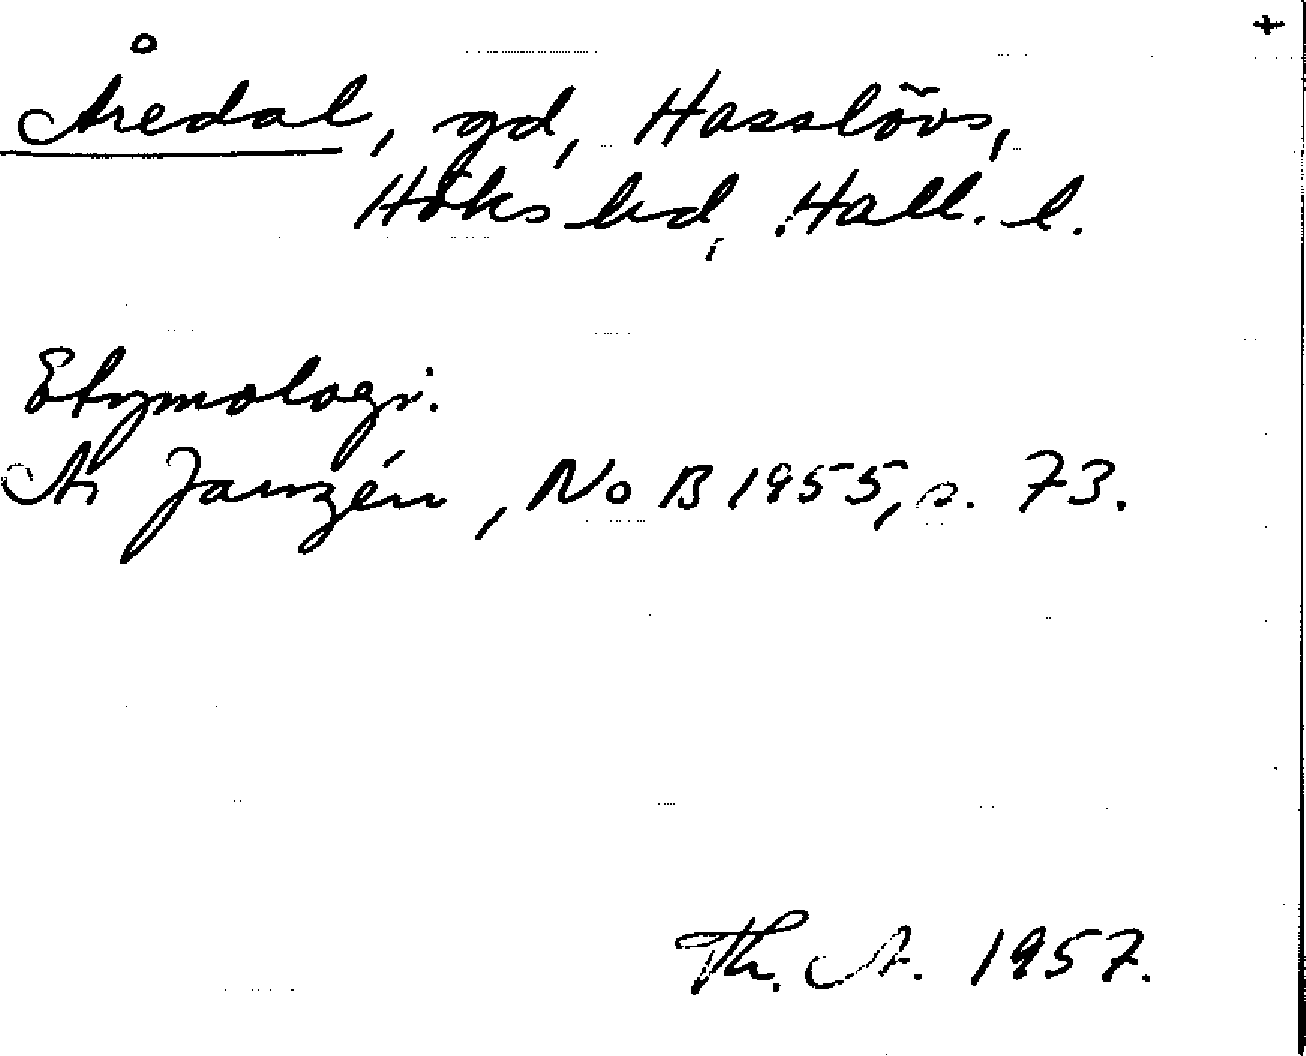 +
Åredal, gd, Hasslövs,
Höks hd, Hall. l.
Etymologi.
A. Janzén, NoB 1955, s. 73.
Th. A. 1957.